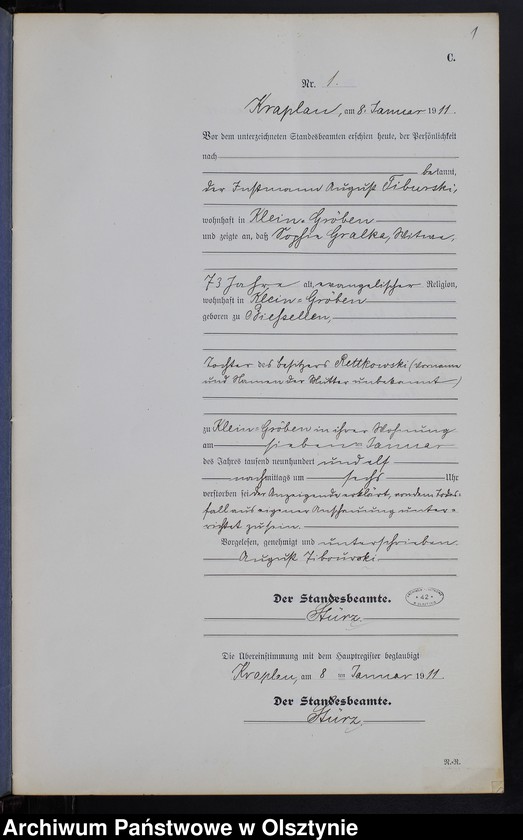 1
C.
Nr. 1.
Kraplau, am 8. Januar 1911.
Vor dem unterzeichneten Standesbeamten erschien heute, der Persönlichkeit
nach
bekannt,
der Instmann August Tiburski,
wohnhaft in Klein-Gröben
und zeigte an, daß Sophie Gralka, Witwe,
73 Jahre alt, evangelischer Religion,
wohnhaft in Klein-Gröben
geboren zu Biessellen,
Tochter des Besitzers Rettkowski (Vorname
und Namen der Mutter unbekannt)
zu Klein-Gröben in ihrer Wohnung
am sieben ten Januar
des Jahres tausend neunhundert und elf
nachmittags um sechs Uhr
verstorben sei der Anzeigende erklärt, von dem Todes-
fall aus eigener Anschauung unter-
richtet zu sein.
Vorgelesen, genehmigt und unterschrieben.
August Tibourski
Der Standesbeamte.
42
Stürz
Die Übereinstimmung mit dem Hauptregister beglaubigt
Kraplau, am 8 ten Januar 1911.
Der Standesbeamte.
Stürz
N.-R.
Archiwum Państwowe w Olsztynie